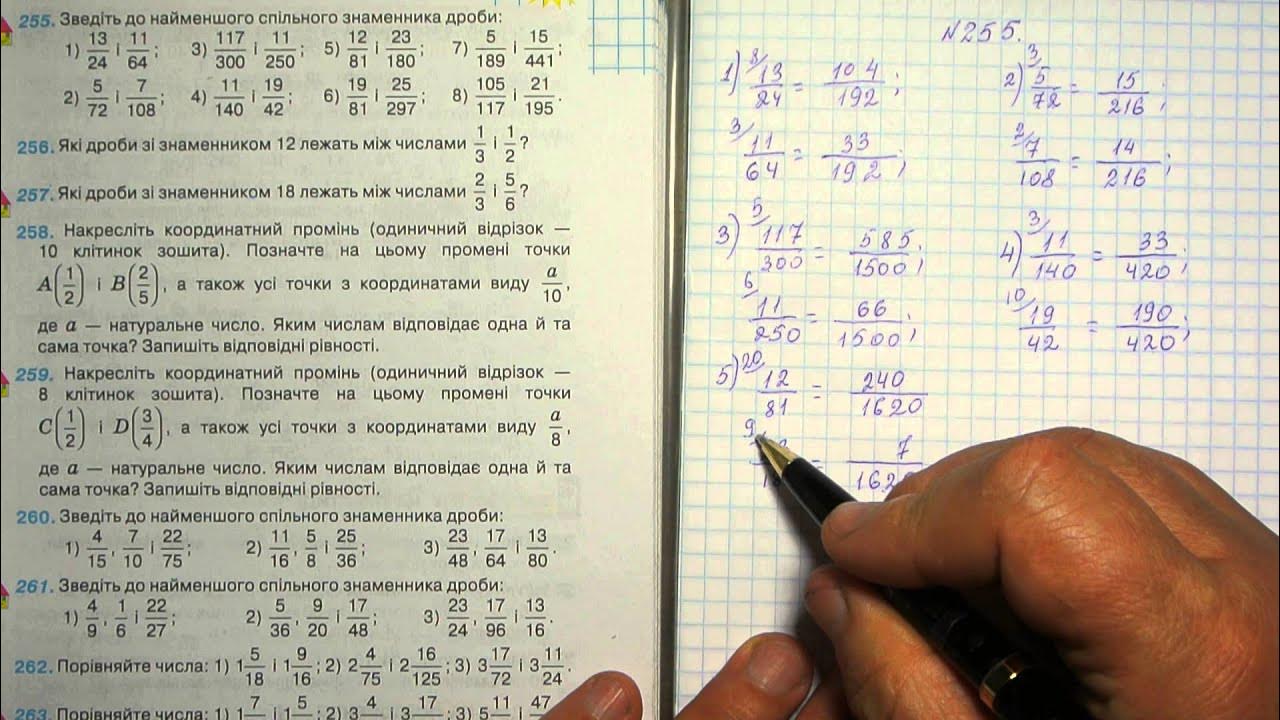 255. Зведіть до найменшого спільного знаменника дроби:
1) 13/24 і 11/64; 3) 117/300 і 11/250; 5) 12/81 і 23/180; 7) 5/189 і 15/441;
2) 5/72 і 7/108; 4) 11/140 і 19/42; 6) 19/81 і 25/297; 8) 105/117 і 21/195.
256. Які дроби зі знаменником 12 лежать між числами 1/3 і 1/2?
257. Які дроби зі знаменником 18 лежать між числами 2/3 і 5/6?
258. Накресліть координатний промінь (одиничний відрізок —
10 клітинок зошита). Позначте на цьому промені точки
A(1/2) і B(2/5), а також усі точки з координатами виду a/10,
де a — натуральне число. Яким числам відповідає одна й та
сама точка? Запишіть відповідні рівності.
259. Накресліть координатний промінь (одиничний відрізок —
8 клітинок зошита). Позначте на цьому промені точки
C(1/2) і D(3/4), а також усі точки з координатами виду a/8,
де a — натуральне число. Яким числам відповідає одна й та
сама точка? Запишіть відповідні рівності.
260. Зведіть до найменшого спільного знаменника дроби:
1) 4/15, 7/10 і 22/75; 2) 11/16, 5/8 і 25/36; 3) 23/48, 17/64 і 13/80.
261. Зведіть до найменшого спільного знаменника дроби:
1) 4/9, 1/6 і 22/27; 2) 5/36, 9/20 і 17/48; 3) 23/24, 17/96 і 13/16.
262. Порівняйте числа: 1) 1 5/18 і 1 9/16; 2) 2 4/75 і 2 16/125; 3) 3 17/72 і 3 11/24.
263. Порівняйте числа: 1) 1 7 і 1 5; 2) 3 4 і 3 17; 3) 5 11 і 47
№255.
1) 8/ 13/24 = 104/192;
3/ 11/64 = 33/192;
2) 3/ 5/72 = 15/216;
2/ 7/108 = 14/216;
3) 5/ 117/300 = 585/1500;
6/ 11/250 = 66/1500;
4) 3/ 11/140 = 33/420;
10/ 19/42 = 190/420;
5) 20/ 12/81 = 240/1620
9/ = 7/1620